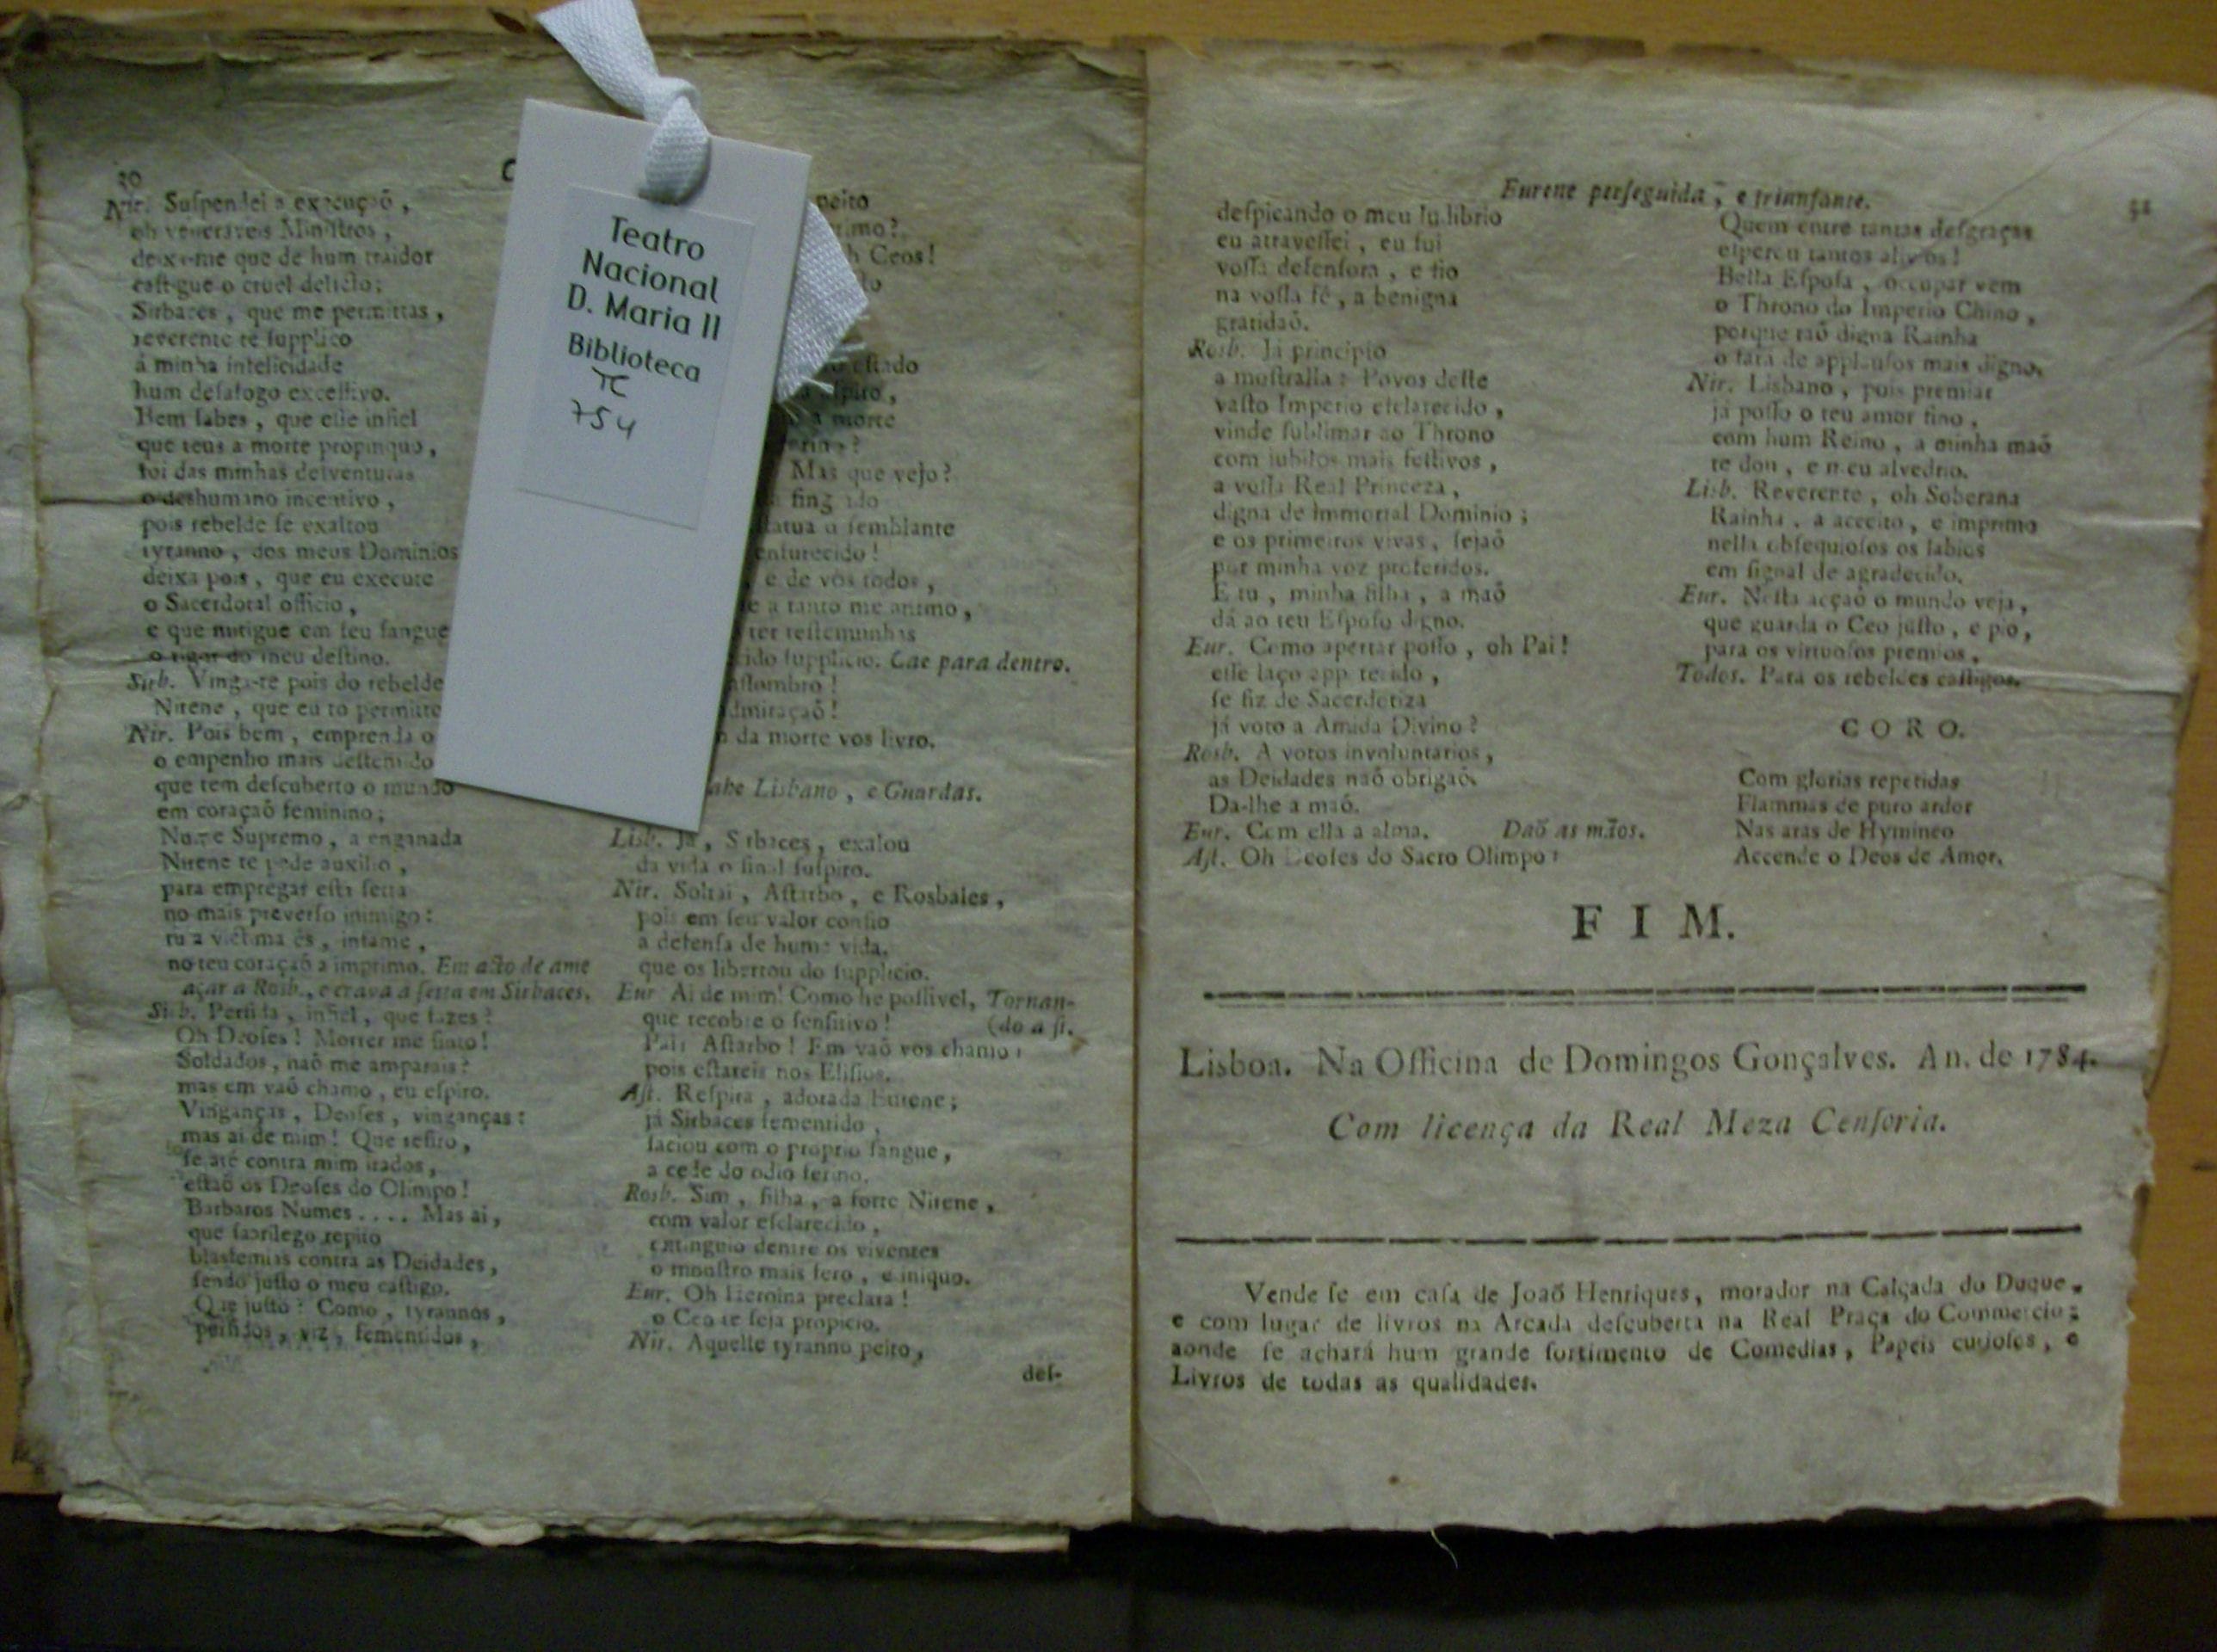 30
Nir. Suſpendei a execuçaõ,
oh veneraveis Miniſtros,
deixi-me que de hum traidor
caſtigue o cruel delicto;
Sirbaces, que me permittas,
reverente te ſupplico
á minha infelicidade
hum deſafogo exceſſivo.
Bem ſabes, que eſſe infiel
que tens a morte propinquo,
foi das minhas deſventuras
o deshumano incentivo,
pois rebelde ſe exaltou
tyranno, dos meus Dominios
deixa pois, que eu execute
o Sacerdotal officio,
e que mitigue em ſeu ſangue
o rigor do meu deſtino.
Sirb. Vinga-te pois do rebelde
Nirene, que eu to permitto
Nir. Pois bem, emprenda o
o empenho mais deſtemido
que tem deſcuberto o mundo
em coraçaõ feminino;
Nume Supremo, a enganada
Nirene te pede auxilio,
para empregar eſta ſetta
no mais preverſo inimigo:
tu a victima és, infame,
no teu coraçaõ a imprimo. Em acto de ame
açar a Rosb., e crava a ſetta em Sirbaces.
Sirb. Perfida, infiel, que fazes?
Oh Deoſes! Morrer me ſinto!
Soldados, naõ me amparais?
mas em vaõ chamo, eu eſpiro.
Vinganças, Deoſes, vinganças:
mas ai de mim! Que refiro,
ſe até contra mim irados,
eſtaõ os Deoſes do Olimpo!
Barbaros Numes.... Mas ai,
que ſacrilego repito
blasfemias contra as Deidades,
ſendo juſto o meu caſtigo.
Que juſto? Como, tyrannos,
perfidos, viz, fementidos,
peito
imo?
h Ceos!
eſtado
ſpiro,
a morte
Mas que vejo?
fingido
atua o ſemblante
enfurecido!
e de vós todos,
e a tanto me animo,
ter teſtemunhas
ido ſupplicio. Cae para dentro.
aſſombro!
dmiraçaõ!
da morte vos livro.
ahe Lisbano, e Guardas.
Lisb. Já, Sirbaces, exalou
da vida o final ſuſpiro.
Nir. Soltai, Aſtarbo, e Rosbales,
pois em ſeu valor confio
a defenſa de huma vida,
que os libertou do ſupplicio.
Eur Ai de mim! Como he poſſivel, Tornan-
que recobre o ſenſitivo! (do a ſi.
Pai! Aſtarbo! Em vaõ vos chamo!
pois eſtareis nos Eliſios.
Aſt. Reſpira, adorada Eurene;
já Sirbaces fementido,
ſaciou com o proprio ſangue,
a cede do odio ferino.
Rosb. Sim, filha, a forte Nirene,
com valor eſclarecido,
extinguio dentre os viventes
o monſtro mais fero, e iniquo.
Eur. Oh Heroina preclara!
o Ceo te ſeja propicio.
Nir. Aquelle tyranno peito,
deſ-
Eurene perſeguida, e triunfante.
31
deſpicando o meu ludibrio
eu atraveſſei, eu fui
voſſa defenſora, e fio
na voſſa fé, a benigna
gratidaõ.
Rosb. Já principio
a moſtralla: Povos deſte
vaſto Imperio eſclarecido,
vinde ſublimar ao Throno
com jubilos mais feſtivos,
a voſſa Real Princeza,
digna de immortal Dominio;
e os primeiros vivas, ſejaõ
por minha voz proferidos.
E tu, minha filha, a maõ
dá ao teu Eſpoſo digno.
Eur. Como apertar poſſo, oh Pai!
eſſe laço appetecido,
ſe fiz de Sacerdotiza
já voto a Amida Divino?
Rosb. A votos involuntarios,
as Deidades naõ obrigaõ.
Da-lhe a maõ.
Eur. Com ella a alma. Daõ as mãos.
Aſt. Oh Deoſes do Sacro Olimpo!
Quem entre tantas deſgraças
eſperou tantos alivios!
Bella Eſpoſa, occupar vem
o Throno do Imperio Chino,
porque taõ digna Rainha
o fará de applauſos mais digno.
Nir. Lisbano, pois premiar
já poſſo o teu amor fino,
com hum Reino, a minha maõ
te dou, e meu alvedrio.
Lisb. Reverente, oh Soberana
Rainha, a acceito, e imprimo
nella obſequioſos os labios
em ſignal de agradecido.
Eur. Neſta acçaõ o mundo veja,
que guarda o Ceo juſto, e pio,
para os virtuoſos premios,
Todos. Para os rebeldes caſtigos.
CORO.
Com glorias repetidas
Flammas de puro ardor
Nas aras de Hymineo
Accende o Deos de Amor.
FIM.
Lisboa. Na Officina de Domingos Gonçalves. An. de 1784.
Com licença da Real Meza Cenſoria.
Vende ſe em caſa de Joaõ Henriques, morador na Calçada do Duque,
e com lugar de livros na Arcada deſcuberta na Real Praça do Commercio;
aonde ſe achará hum grande ſortimento de Comedias, Papeis curioſos, e
Livros de todas as qualidades.
Teatro
Nacional
D. Maria II
Biblioteca
TC
754